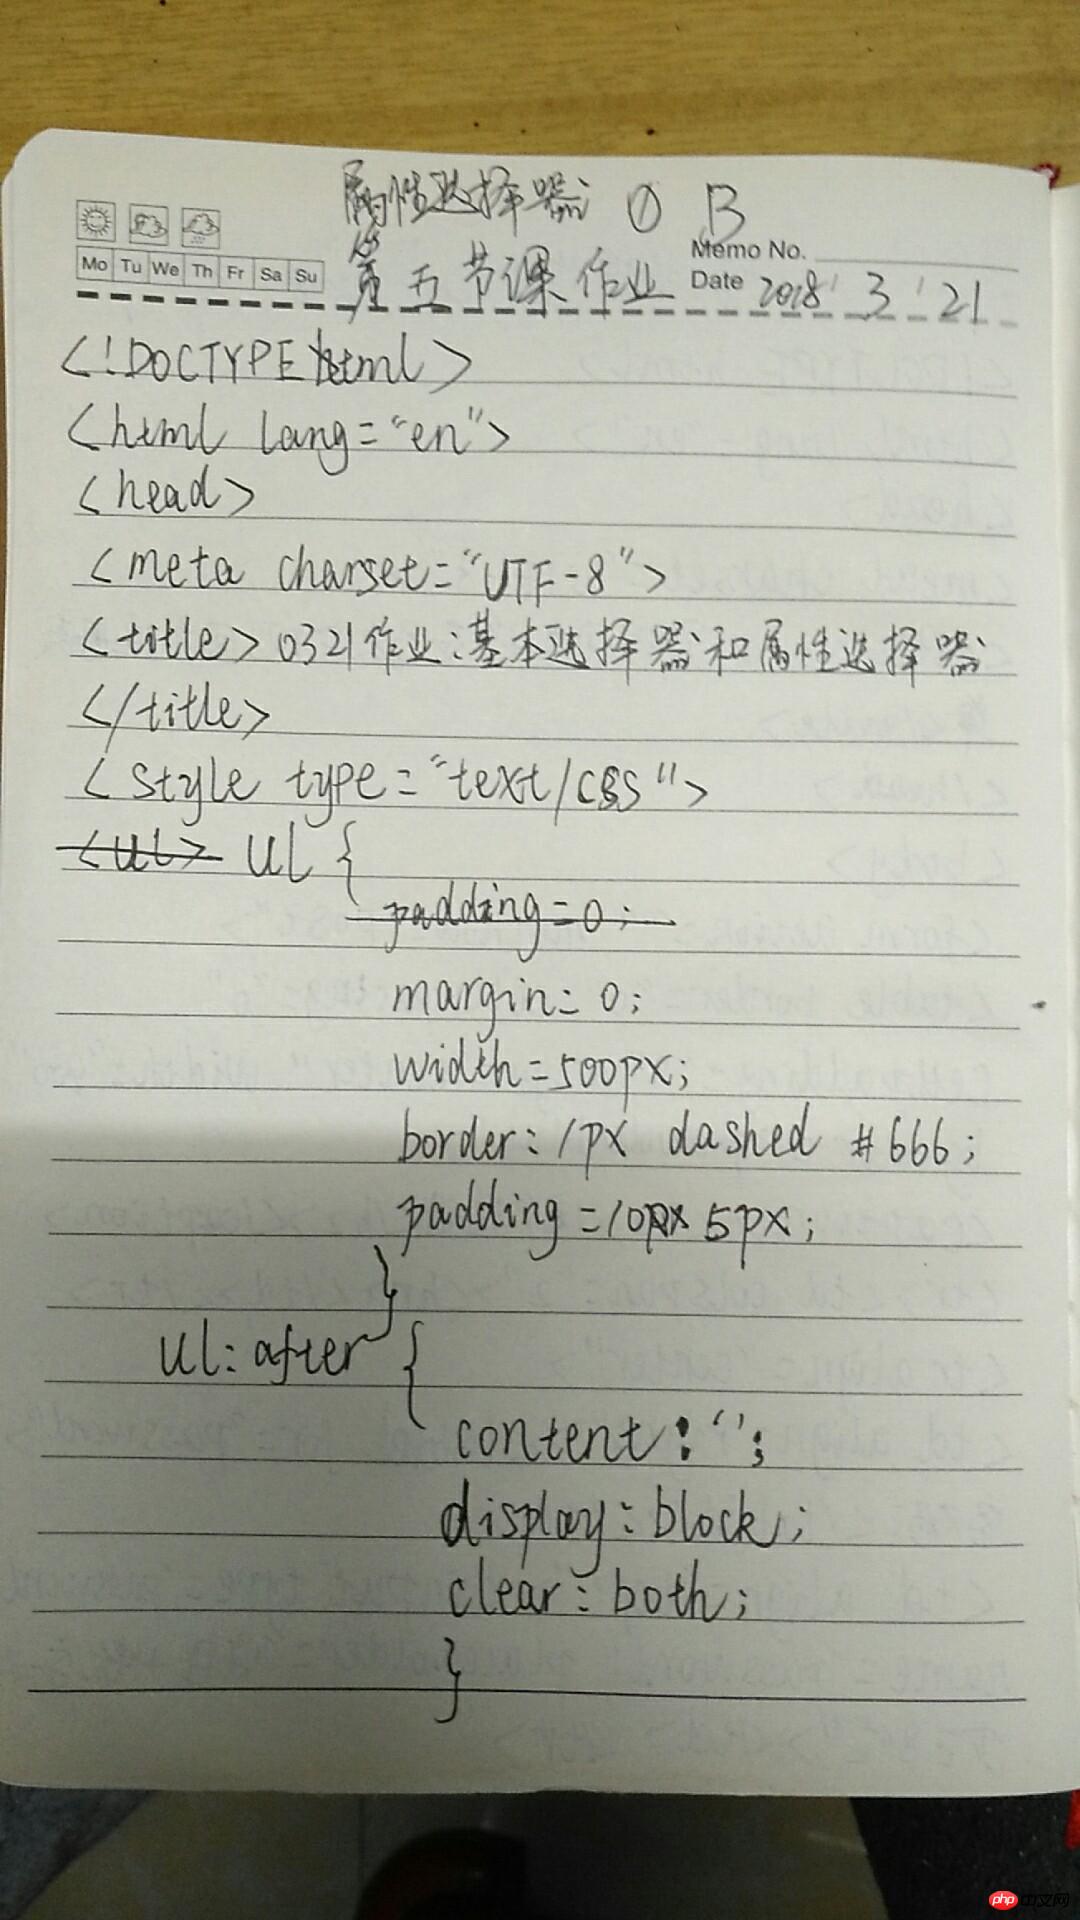 属性选择器 ① B
Memo No.
Mo Tu We Th Fr Sa Su
第五节课作业
Date 2018 3 21
<!DOCTYPE html>
<html lang="en">
<head>
<meta charset="UTF-8">
<title>0321作业:基本选择器和属性选择器
</title>
<style type="text/css">
<ul> ul {
padding=0;
margin: 0;
width=500px;
border: 1px dashed #666;
padding=10px 5px;
}
ul:after {
content: '';
display: block;
clear: both;
}
php 中文网